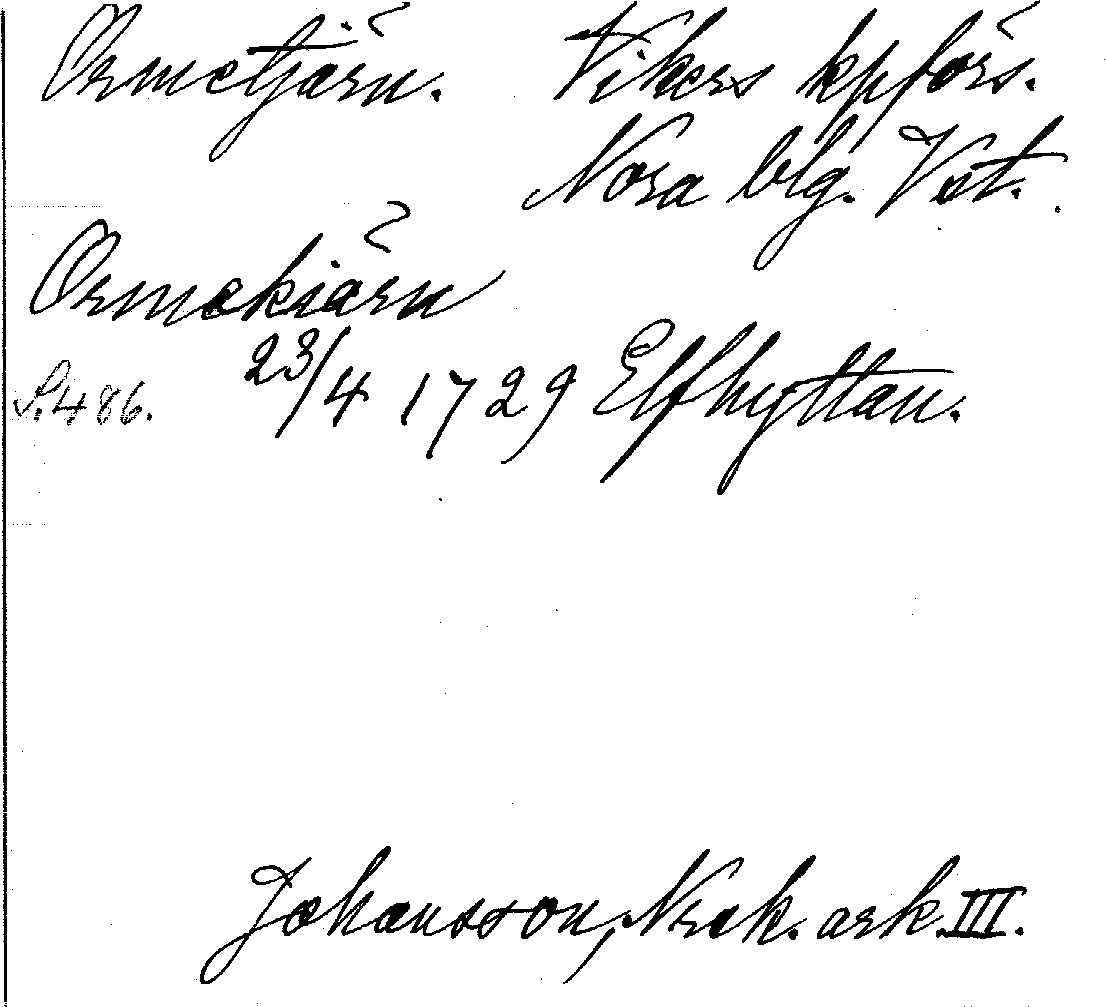 Ormetjärn. Vikers kpförs.
Nora blg. Vst.
Ormekiärn
S. 486. 23/4 1729 Elfhyttan.
Johansson, Nrak. ark. III.